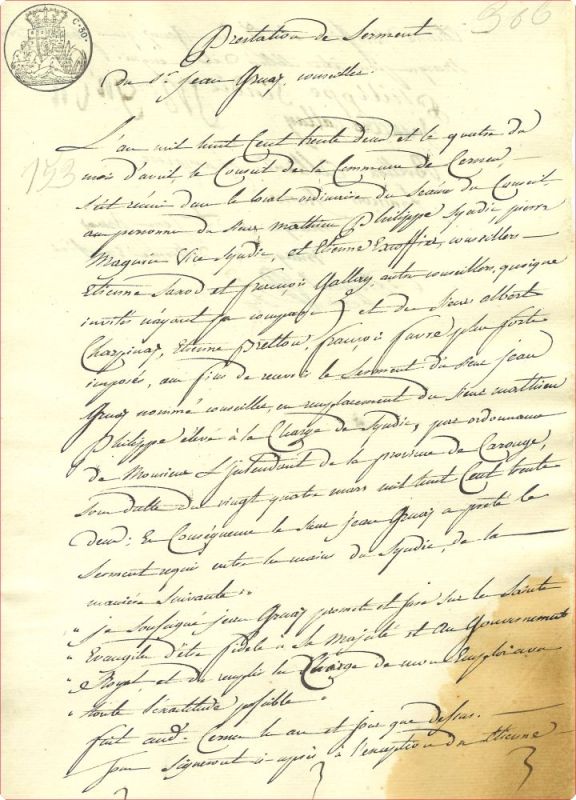 C. 50.
366
Prestation de Serment
Du Sr. jean Gruaz conseiller.
L'an mil huit Cent trente deux et le quatre du
mois d'avril le Conseil de la Commune de Cernex
s'est réuni dans le local ordinaire des séances du Conseil
153
au personnes du Sieur mathieu Philippe Syndic, pierre
Magnin Vice Syndic, et Etienne Excoffier, conseillers
Etienne Tarod et francois Gallay, autre conseillers, quoique
invités n'ayant pa comparu et des Sieur albert
Charpinaz, Etienne Pretton, françois favre plus forts
imposés, au fins de recevoir le Serment du Sieur jean
Gruaz nommé conseiller, en remplacement du Sieur mathieu
Philippe élevé à la Charge de Syndic, par ordonnance
de Monsieur L'jntendant de la province de Carouge,
sous datte du vingt quatre mars mil huit Cent trente
deux; En Conséquence le Sieur jean Gruaz a prêté le
Serment requis entre les mains du Syndic, de la
manière Suivante.
" je Soussigné jean Gruaz promet et jure sur les Saints
" Evangiles d'être fidèle à Sa Majesté et au Gouvernement
" Royal, et de remplir la Charge de mon Emploi avec
" toute l'exactitude possible
fait aud. Cernex les an et jour que dessus.
jour Signeront ci-après à l'exception du Etienne